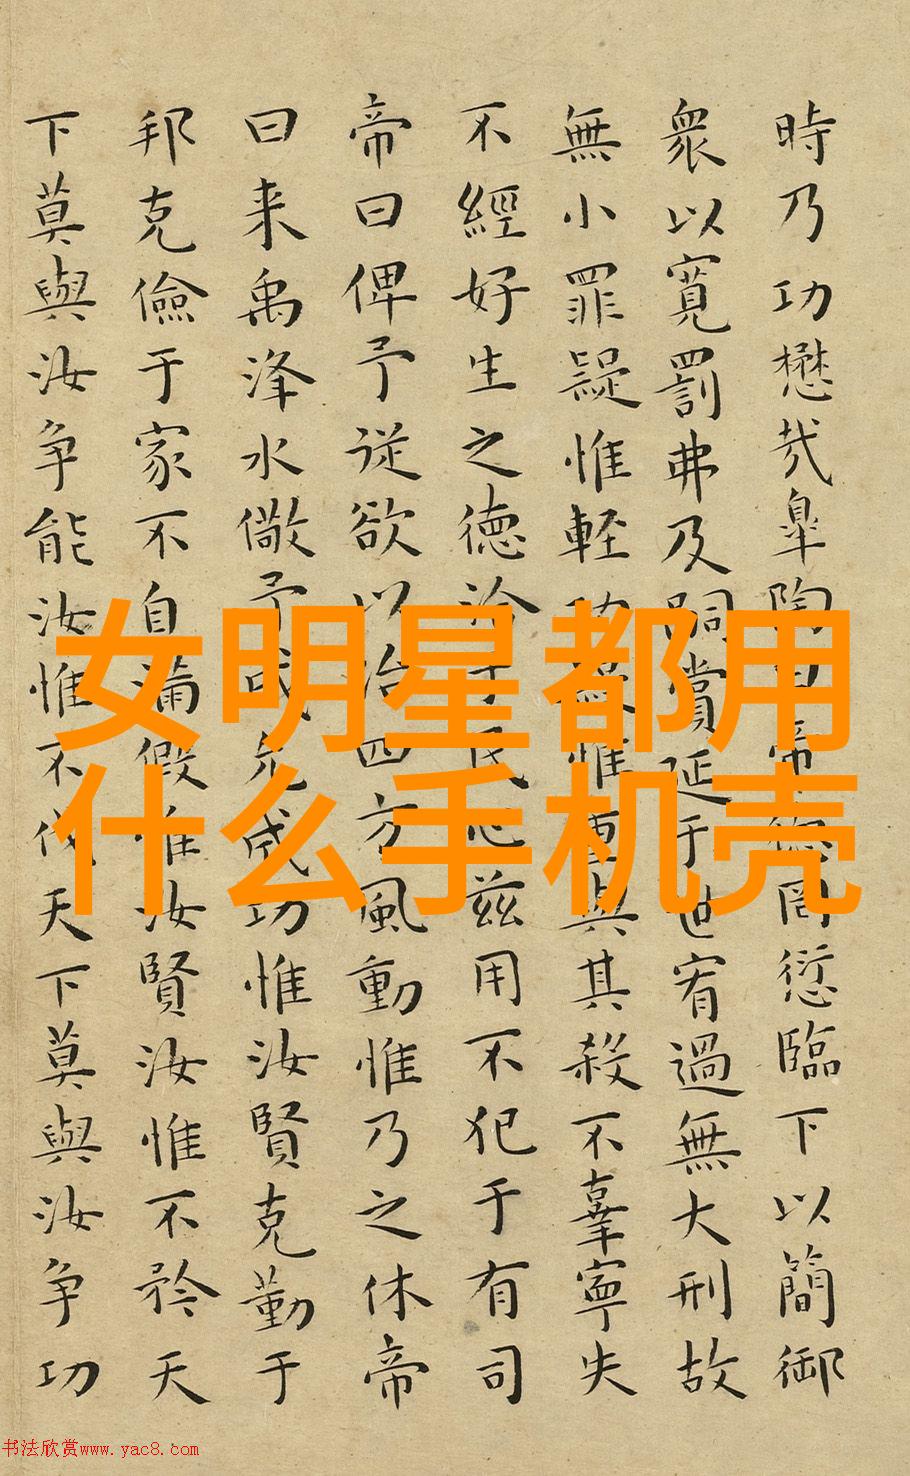 時乃功懋哉皐陶曰帝德罔愆臨下以簡御
衆以寬罰弗及嗣賞延于世宥過無大刑故
無小罪疑惟輕功疑惟重與其殺不辜寧失
不經好生之德洽于民心兹用不犯于有司
帝曰俾予從欲以治四方風動惟乃之休帝
曰来禹洚水儆予成允成功惟汝賢克勤于
邦克儉于家不自滿假惟汝賢汝惟不矜天
下莫與汝争能汝惟不伐天下莫與汝争功
女明星都用
什么手机壳
书法欣赏www.yac8.com